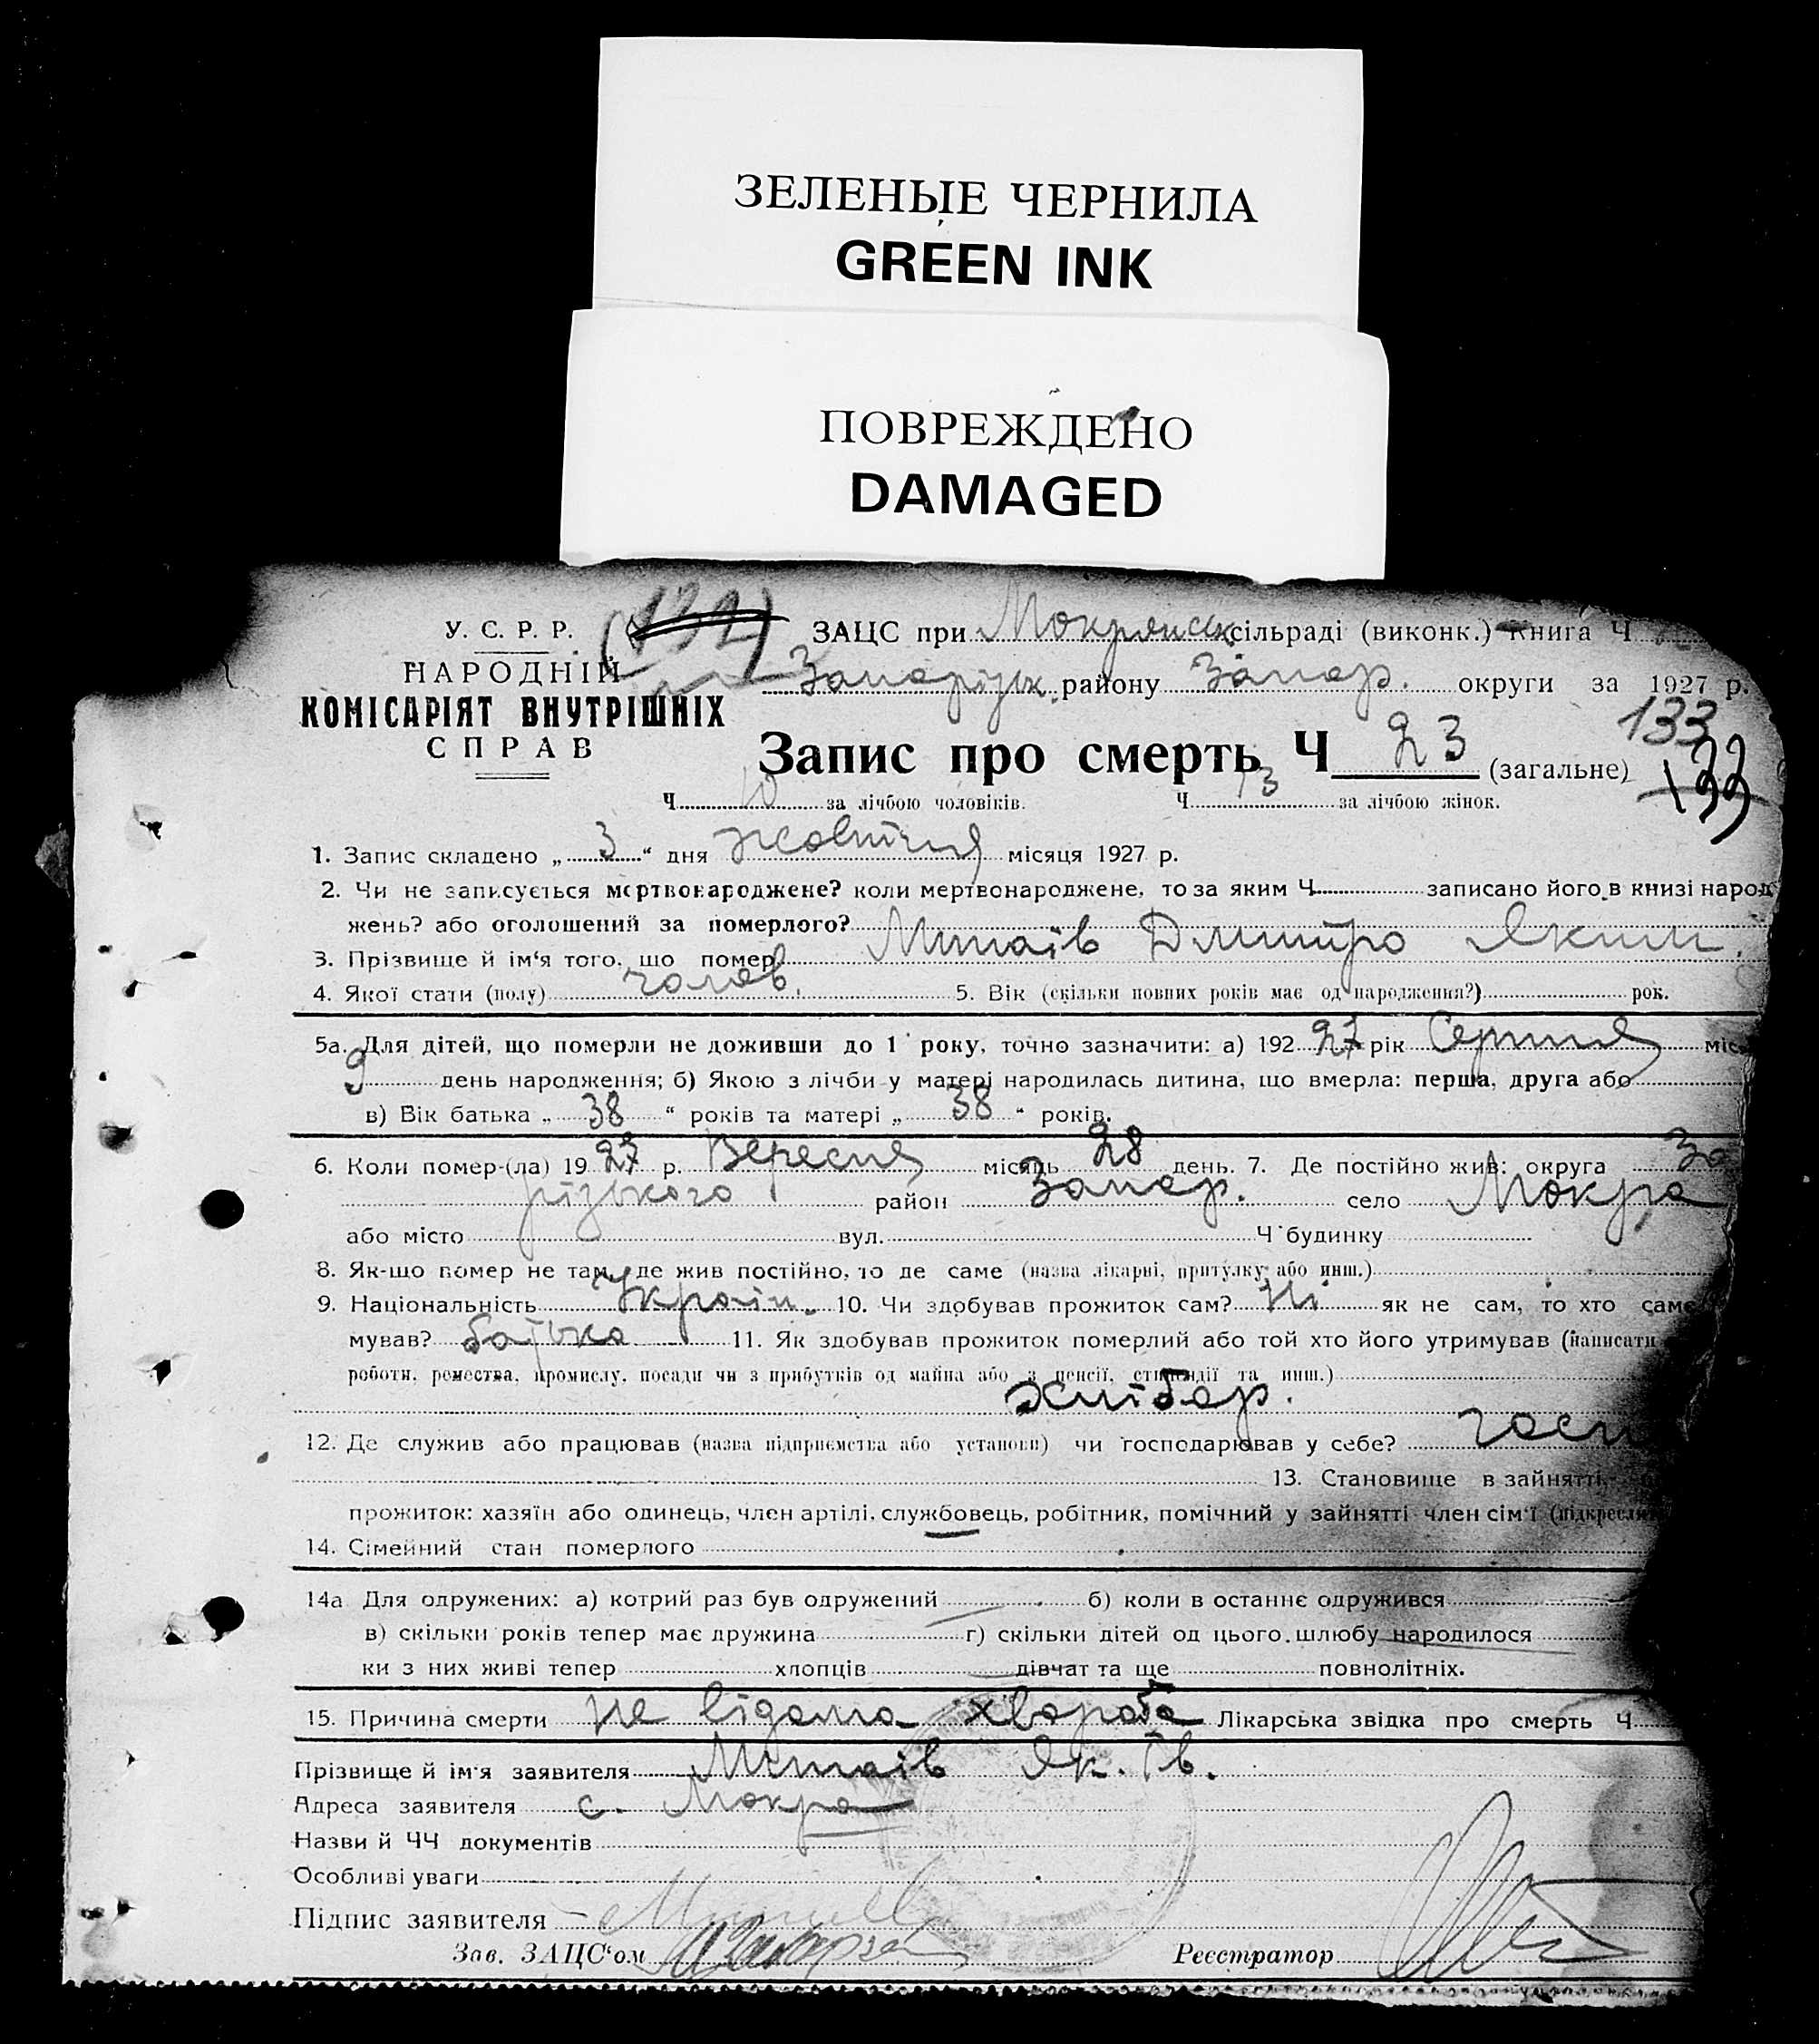 ЗЕЛЕНЫЕ ЧЕРНИЛА
GREEN INK
ПОВРЕЖДЕНО
DAMAGED
У. С. Р. Р. (132) ЗАЦС при Мокрянськ сільраді (виконк.) Книга Ч
НАРОДНІЙ Запорізьк. району Запор. округи за 1927 р.
КОМІСАРІЯТ ВНУТРІШНІХ
СПРАВ
133
Запис про смерть Ч 23 (загальне) 133
Ч 10 за лічбою чоловіків. Ч 13 за лічбою жінок.
1. Запис складено „ 3 “ дня жовтня місяця 1927 р.
2. Чи не записується мертвонароджене? коли мертвонароджене, то за яким Ч записано його в книзі народ
жень? або оголошений за померлого?
3. Прізвище й ім‘я того, що помер Минаїв Дмитро Яким.
4. Якої стати (полу) чолов. 5. Вік (скільки повних років має од народження?) рок.
5а. Для дітей, що померли не доживши до 1 року, точно зазначити: а) 192 27 рік Серпня міс
9 день народження; б) Якою з лічби у матері народилась дитина, що вмерла: перша, друга або
в) Вік батька „ 38 “ років та матері „ 38 “ років.
6. Коли помер-(ла) 19 27 р. Вересня місяць 28 день. 7. Де постійно жив: округа За
різького район Запор. село Мокра
або місто вул. Ч будинку
8. Як-що помер не там, де жив постійно, то де саме (назва лікарні, притулку або инш.)
9. Національність Україн. 10. Чи здобував прожиток сам? Ні як не сам, то хто саме
мував? батько 11. Як здобував прожиток померлий або той хто його утримував (написати
роботи, ремества, промислу, посади чи з прибутків од майна або з пенсії, стипендії та инш.)
хлібор.
12. Де служив або працював (назва підприємства або установи) чи господарював у себе? госп
13. Становище в зайнятті,
прожиток: хазяїн або одинець, член артілі, службовець, робітник, помічний у зайнятті член сім‘ї (підкресли
14. Сімейний стан померлого
14а Для одружених: а) котрий раз був одружений б) коли в останнє одружився
в) скільки років тепер має дружина г) скільки дітей од цього шлюбу народилося
ки з них живі тепер хлопців дівчат та ще повнолітніх.
15. Причина смерти не відома хвороба Лікарська звідка про смерть Ч
Прізвище й ім‘я заявителя Минаїв Як. Ів.
Адреса заявителя с. Мокра
Назви й ЧЧ документів
Особливі уваги
Підпис заявителя
Зав. ЗАЦС‘ом Реєстратор